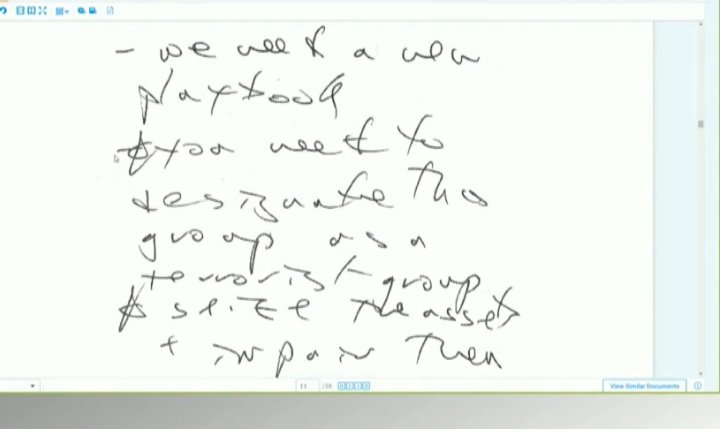 - we need a new
playbook
* you need to
designate this
group as a
terrorist group
* seize the assets
+ impair them
11 /38
View Similar Documents